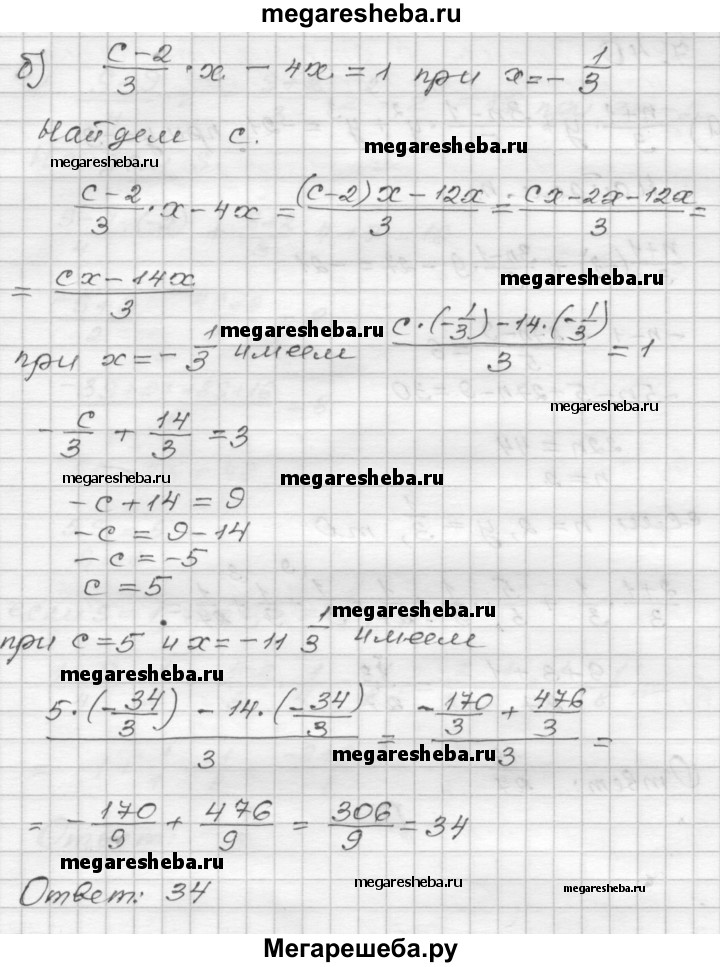 megaresheba.ru
б) (c-2)/3 · x - 4x = 1 при x = - 1/3
Найдем c.
megaresheba.ru
megaresheba.ru
(c-2)/3 · x - 4x = ((c-2)x - 12x)/3 = (cx - 2x - 12x)/3 =
= (cx - 14x)/3
megaresheba.ru
при x = - 1/3 имеем (c·(-1/3) - 14·(-1/3))/3 = 1
megaresheba.ru
megaresheba.ru
- c/3 + 14/3 = 3
megaresheba.ru
megaresheba.ru
-c + 14 = 9
-c = 9 - 14
-c = -5
c = 5
megaresheba.ru
при c = 5 и x = -11 1/3 имеем
megaresheba.ru
(5·(-34/3) - 14·(-34/3))/3 = (-170/3 + 476/3)/3 =
megaresheba.ru
= - 170/9 + 476/9 = 306/9 = 34
megaresheba.ru
Ответ: 34
megaresheba.ru
megaresheba.ru
Мегарешеба.ру